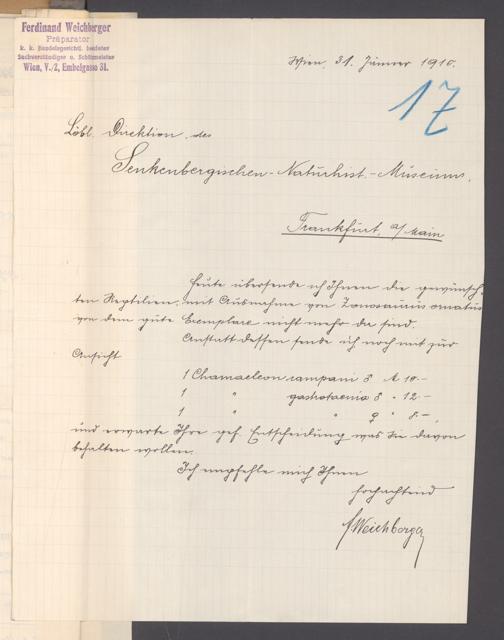 Ferdinand Weichberger
Präparator
k. k. handelsgerichtl. beeideter
Sachverständiger u. Schätzmeister
Wien, V./2, Embelgasse 31.
Wien, 31. Jänner 1910.
17
Löbl. Direktion des
Senkenbergischen-Naturhist.-Museums,
Frankfurt, a/Main
Heute übersende ich Ihnen die gewünsch-
ten Reptilien, mit Ausnahme von Zonosaurus ornatus
von dem gute Exemplare nicht mehr da sind.
Anstatt dessen sende ich noch mit zur
Ansicht
1 Chamaeleon campani ♂ M 10.-
1 " gastrotaenia ♂ " 12.-
1 " " ♀ " 8.-,
und erwarte Ihre gef. Entscheidung was Sie davon
behalten wollen.
Ich empfehle mich Ihnen
hochachtend
F Weichberger